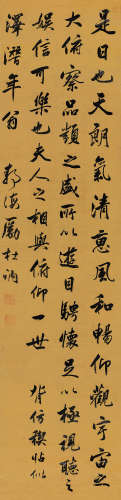 是日也天朗氣清惠風和暢仰觀宇宙之
大俯察品類之盛所以遊目騁懷足以極視聽之
娛信可樂也夫人之相與俯仰一世 背仿禊帖似
澤潛年翁 勵杜訥